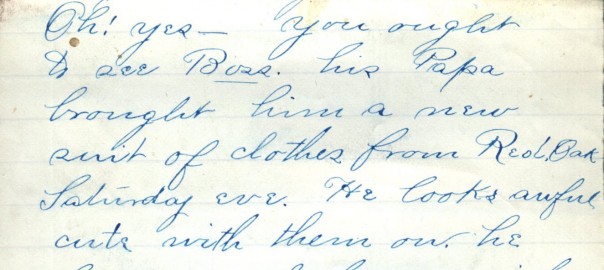 Oh! yes— you ought
to see Boss. his Papa
brought him a new
suit of clothes from Red Oak
Saturday eve. He looks awful
cute with them on. he